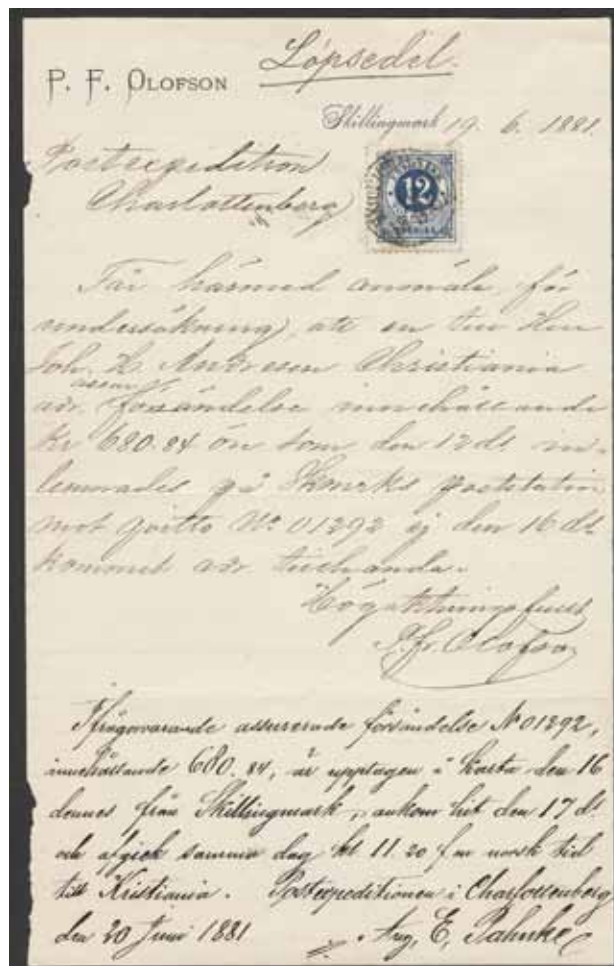 Löpsedel.
P. F. OLOFSON
Skillingmark 19. 6. 1881.
Postexpedition
Charlottenberg
12
Får härmed anmäla, för
undersökning, att en till Herr
Joh. H. Andresen Christiania
assur.
adr. försändelse innehållande
kr 680.84 öre som den 12 ds in-
lemnades på Skmrks poststation
mot qvitto No 01292 ej den 16 ds
kommit adr. tillhanda.
Högaktningsfullt
P. Fr. Olofson
Ifrågavarande assurerade försändelse No 01292,
innehållande 680.84, är upptagen i karta den 16
dennes från Skillingmark, ankom hit den 17 ds
och afgick samma dag kl 11.20 f.m norsk tid
till Kristiania. Postexpeditionen i Charlottenberg
den 20 Juni 1881. Aug. E. Pahnke